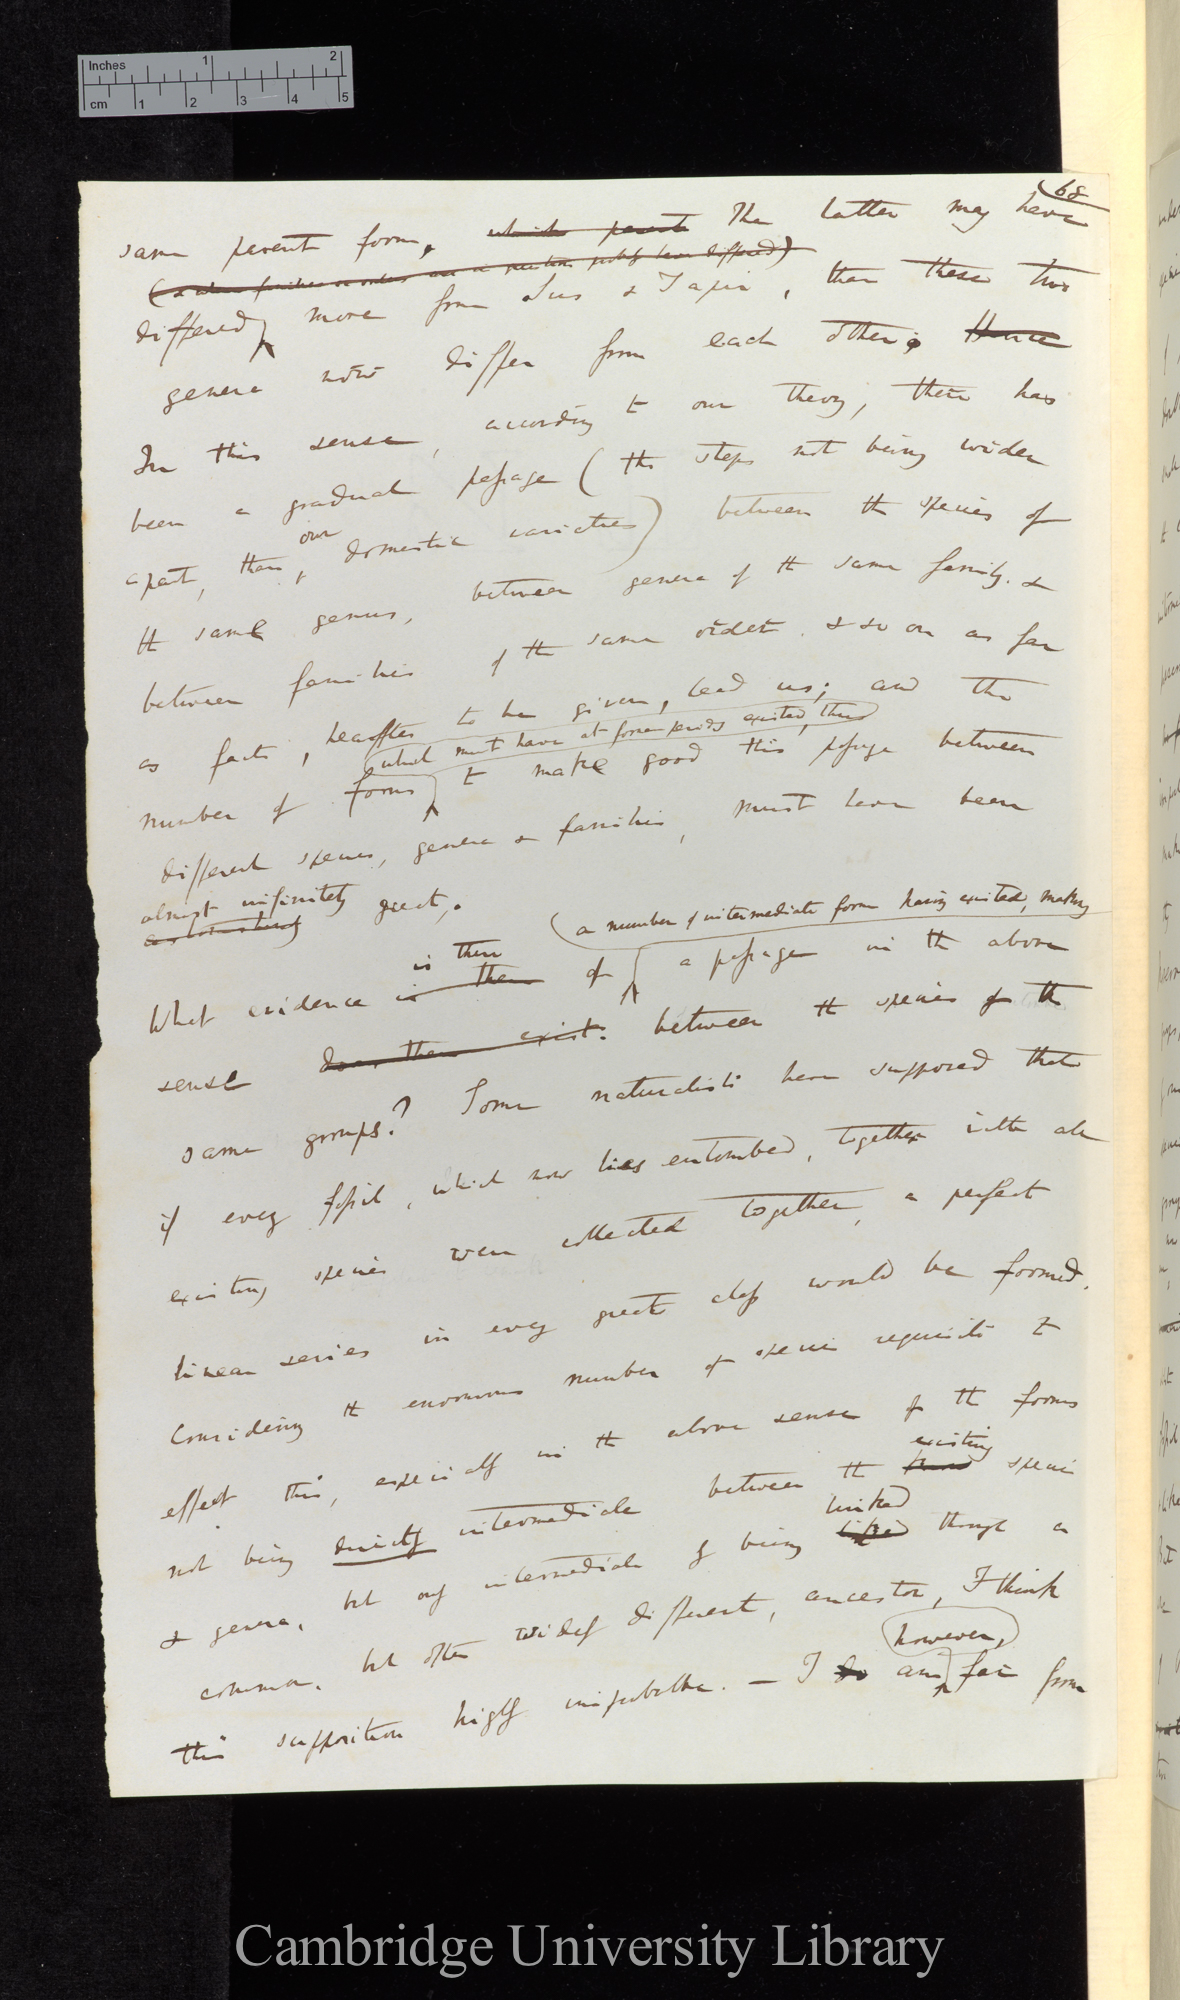 Inches 1 2
cm 1 2 3 4 5
68
same parent form, which parent The latter may have
differed more from Sus & Tapir, than these two
genera now differ from each other. Hence
In this sense, according to our theory, there has
been a gradual passage (the steps not being wider
our
apart, than, domestic varieties) between the species of
the same genus, between genera of the same family, &
between families of the same order, & so on as far
as facts, hereafter to be given, lead us; and the
which must have at former periods existed, thus
number of forms to make good this passage between
different species, genera & families, must have been
almost infinitely great.
astonishing
a number of intermediate forms having existed, making
is there
What evidence is there of a passage in the above
sense does there exist. between the species of the
same groups? Some naturalists have supposed that
if every fossil, which now lies entombed, together with all
existing species were collected together, a perfect
linear series in every great class would be formed.
Considering the enormous number of species requisite to
effect this, especially in the above sense of the forms
existing
not being directly intermediate between the species
linked
& genera, but only intermediate by being liked through a
common, but often widely different, ancestor, I think
however,
this supposition highly improbable. — I do am far from
Cambridge University Library